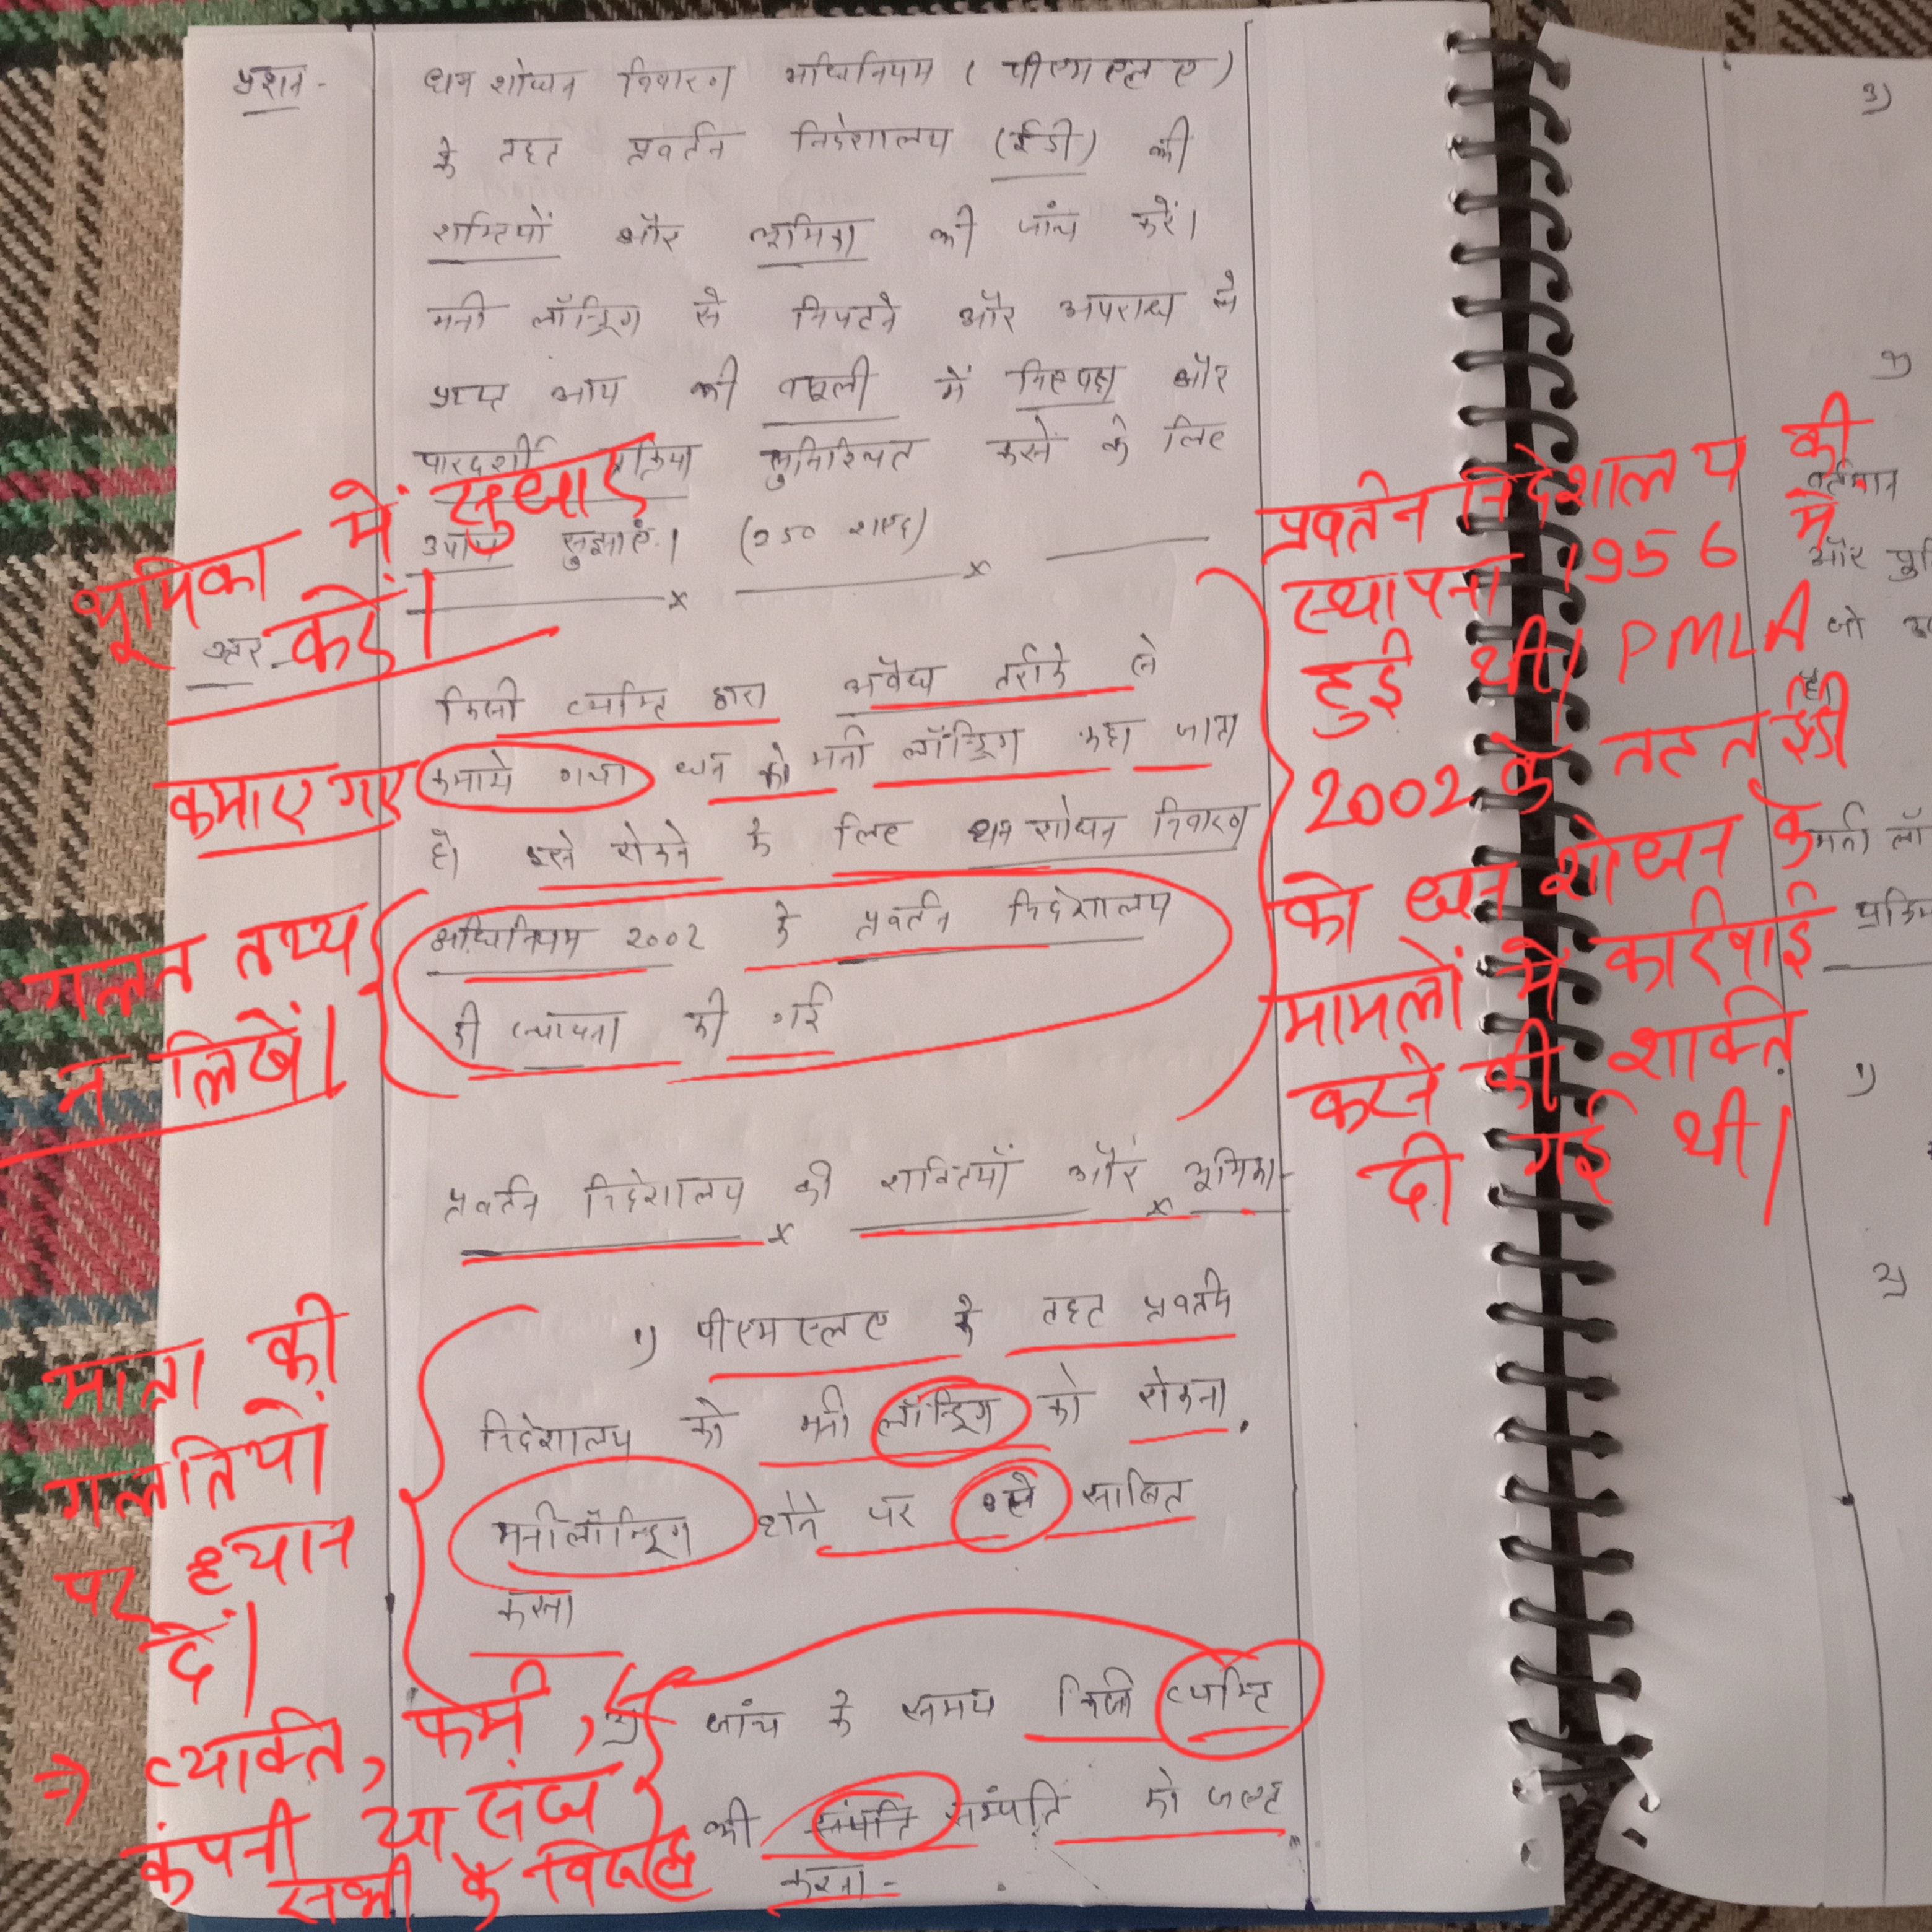 प्रश्न -
धन शोधन निवारण अधिनियम ( पीएमएलए )
के तहत प्रवर्तन निदेशालय (ईडी) की
शक्तियों और भूमिका की जांच करें।
मनी लॉन्ड्रिंग से निपटने और अपराध से
प्राप्त आय की वसूली में निष्पक्ष और
पारदर्शी प्रक्रिया सुनिश्चित करने के लिए
उपाय सुझाएं। (250 शब्द)
भूमिका में सुधार
करें।
उत्तर -
किसी व्यक्ति द्वारा अवैध तरीके से
कमाये गया धन को मनी लॉन्ड्रिंग कहा जाता
है। इसे रोकने के लिए धन शोधन निवारण
अधिनियम 2002 के प्रवर्तन निदेशालय
की स्थापना की गई
कमाए गए
गलत तथ्य
न लिखें।
प्रवर्तन निदेशालय की
स्थापना 1956 में
हुई थी। PMLA
2002 के तहत ईडी
को धन शोधन के
मामलों में कार्रवाई
करने की शक्ति
दी गई थी।
प्रवर्तन निदेशालय की शक्तियाँ और भूमिका -
1) पीएमएलए के तहत प्रवर्तन
निदेशालय को मनी लॉन्ड्रिंग को रोकना,
मनीलॉन्ड्रिंग होने पर उसे साबित
करना
मात्रा की
गलतियों
पर ध्यान
दें।
2) जांच के समय किसी व्यक्ति
की संपत्ति सम्पति को जब्त
करना -
⇒ व्यक्ति, फर्म,
कंपनी या संघ
सभी के विरूद्ध
3)
वर्तमान
और
जो
है।
मनी लॉ
1)
2)